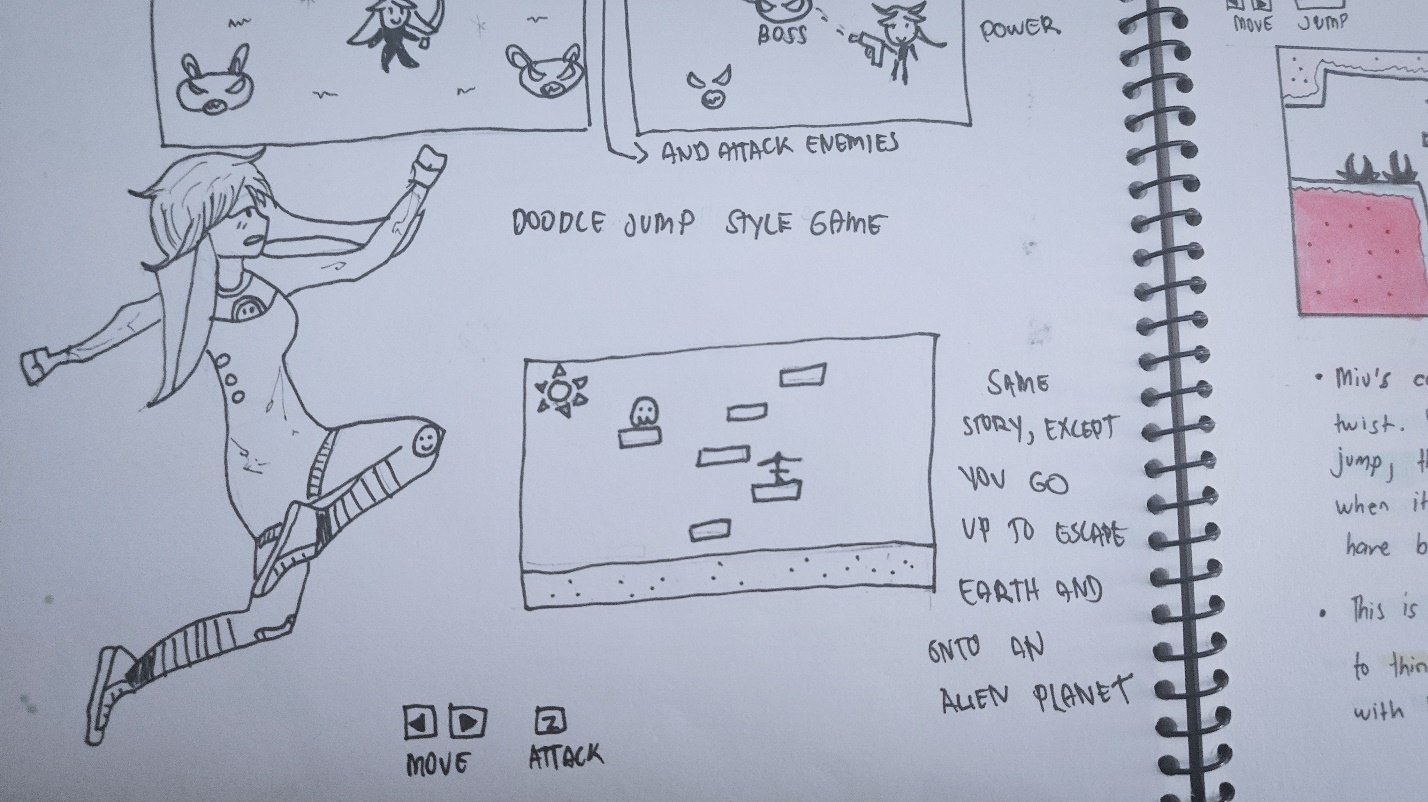 BOSS
POWER
AND ATTACK ENEMIES
DOODLE JUMP STYLE GAME
SAME
STORY, EXCEPT
YOU GO
UP TO ESCAPE
EARTH AND
ONTO AN
ALIEN PLANET
Z
MOVE ATTACK
MOVE JUMP
• Miv's
twist.
jump,
when it
have
• This is
to
with